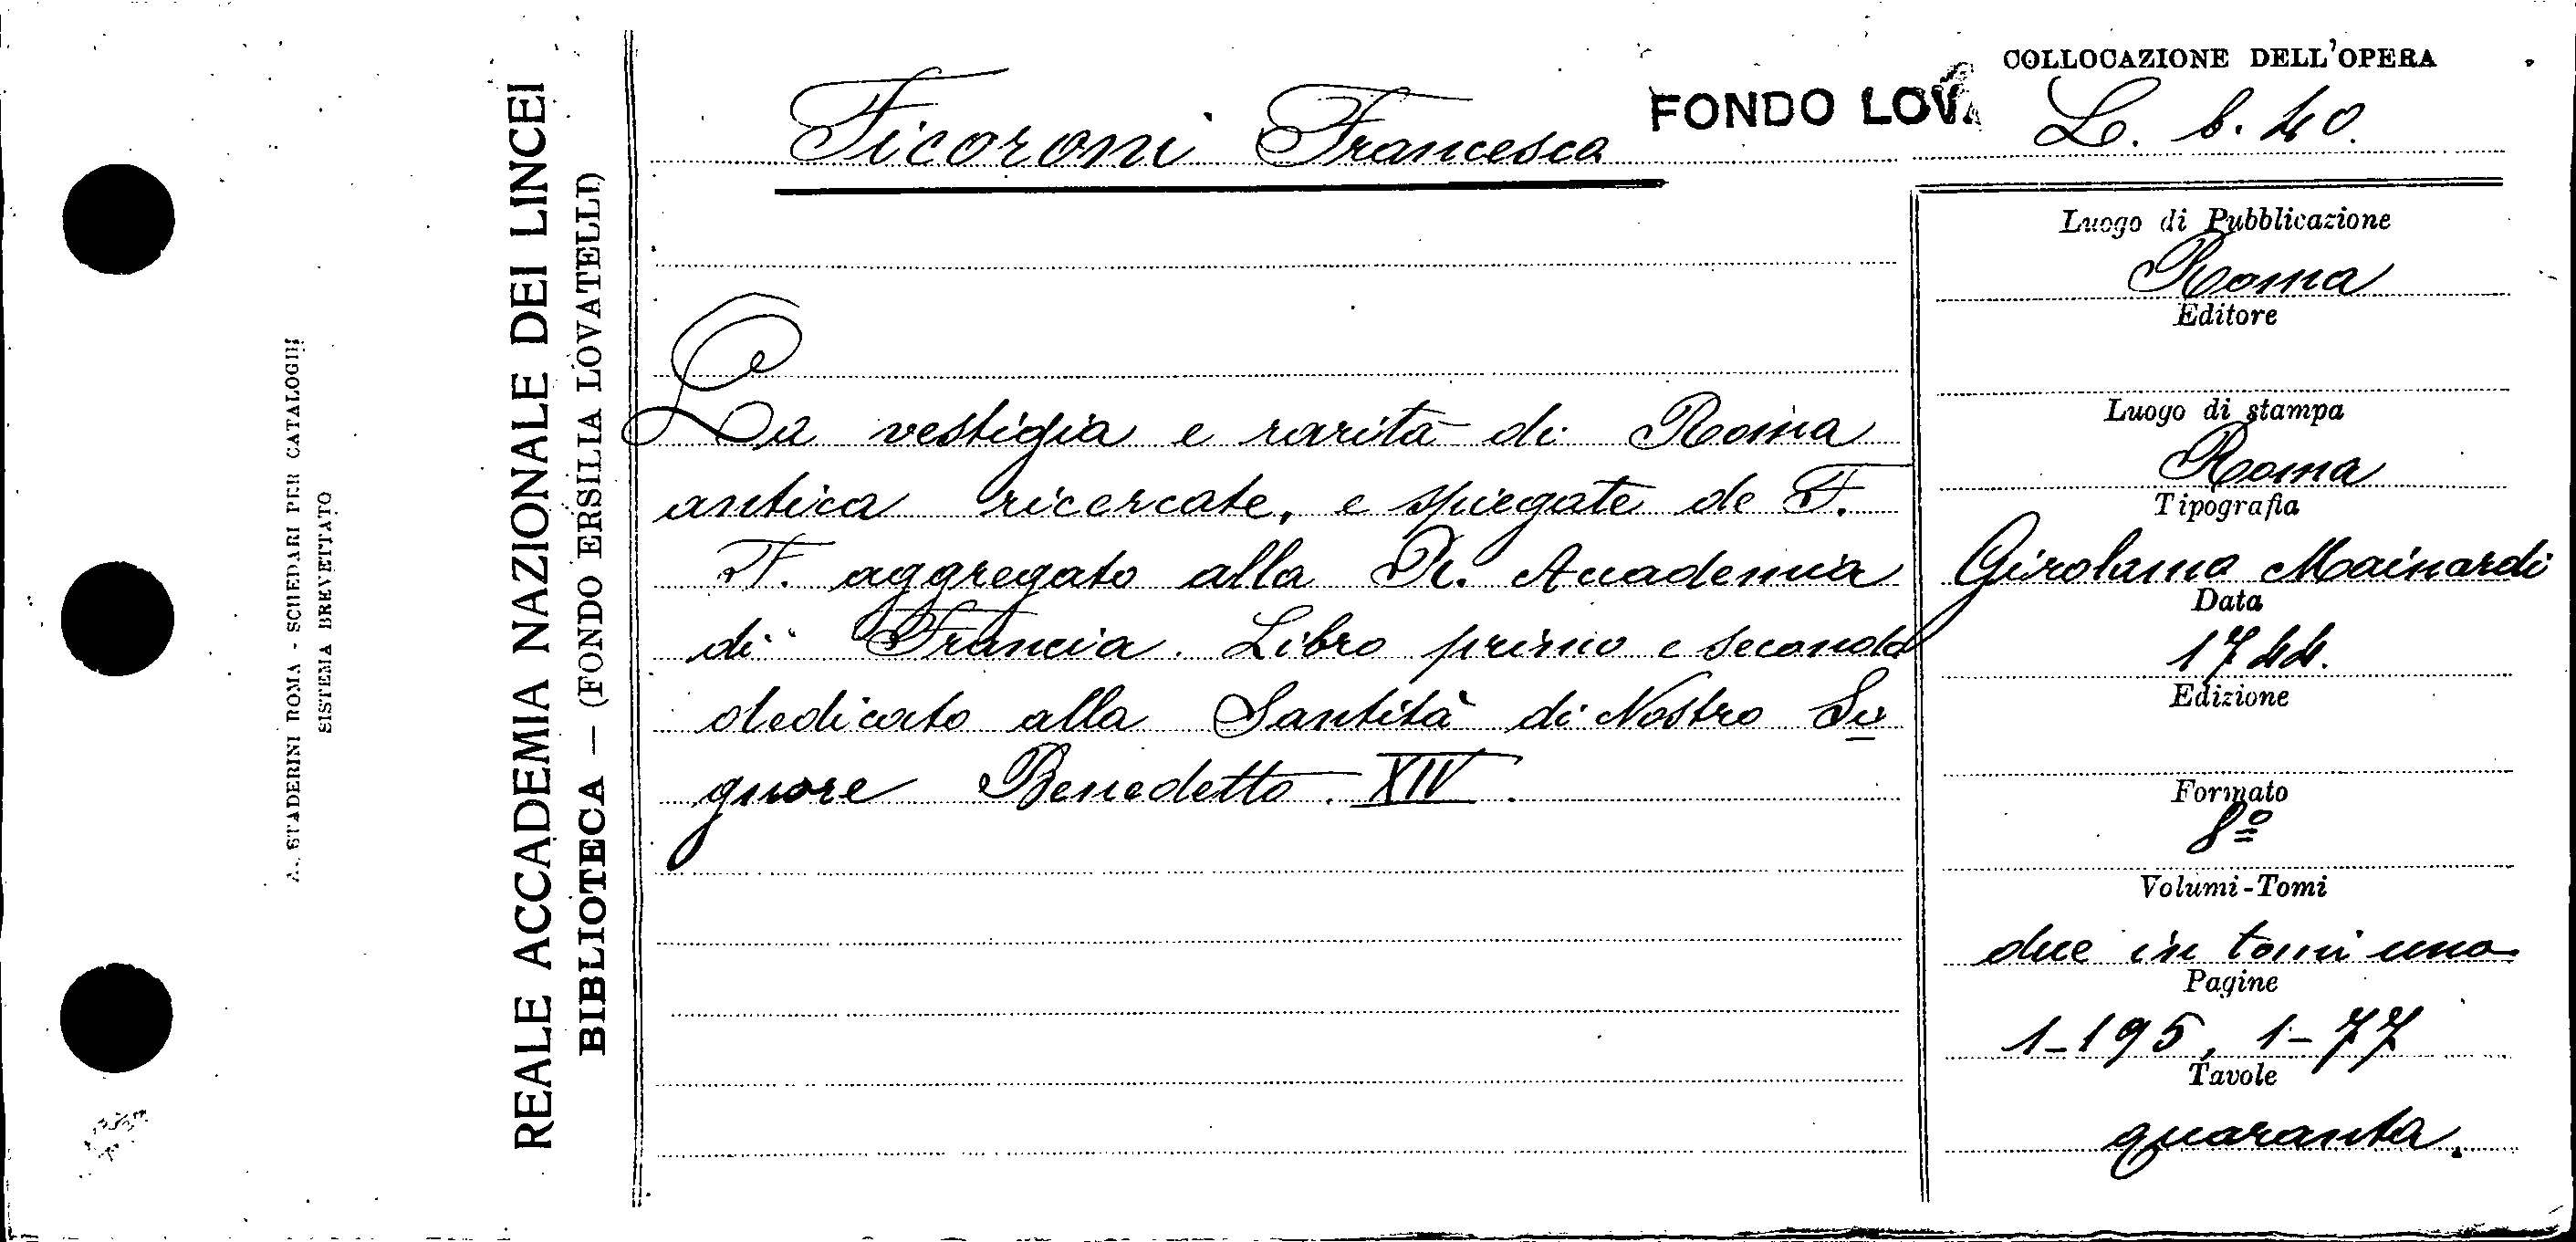 COLLOCAZIONE DELL'OPERA
Ficoroni Francesca
FONDO LOVA
L. b. 40.
La vestigia e rarità di Roma
antica ricercate, e spiegate de F.
F. aggregato alla R. Accademia
di Francia. Libro primo e secondo
dedicato alla Santità di Nostro Si
gnore Benedetto XIV.
Luogo di Pubblicazione
Roma
Editore
Luogo di stampa
Roma
Tipografia
Girolamo Mainardi
Data
1744.
Edizione
Formato
8º
Volumi-Tomi
due in tomi uno
Pagine
1-195, 1-77
Tavole
quaranta.
REALE ACCADEMIA NAZIONALE DEI LINCEI
BIBLIOTECA — (FONDO ERSILIA LOVATELLI)
A. STADERINI ROMA - SCHEDARI PER CATALOGHI
SISTEMA BREVETTATO